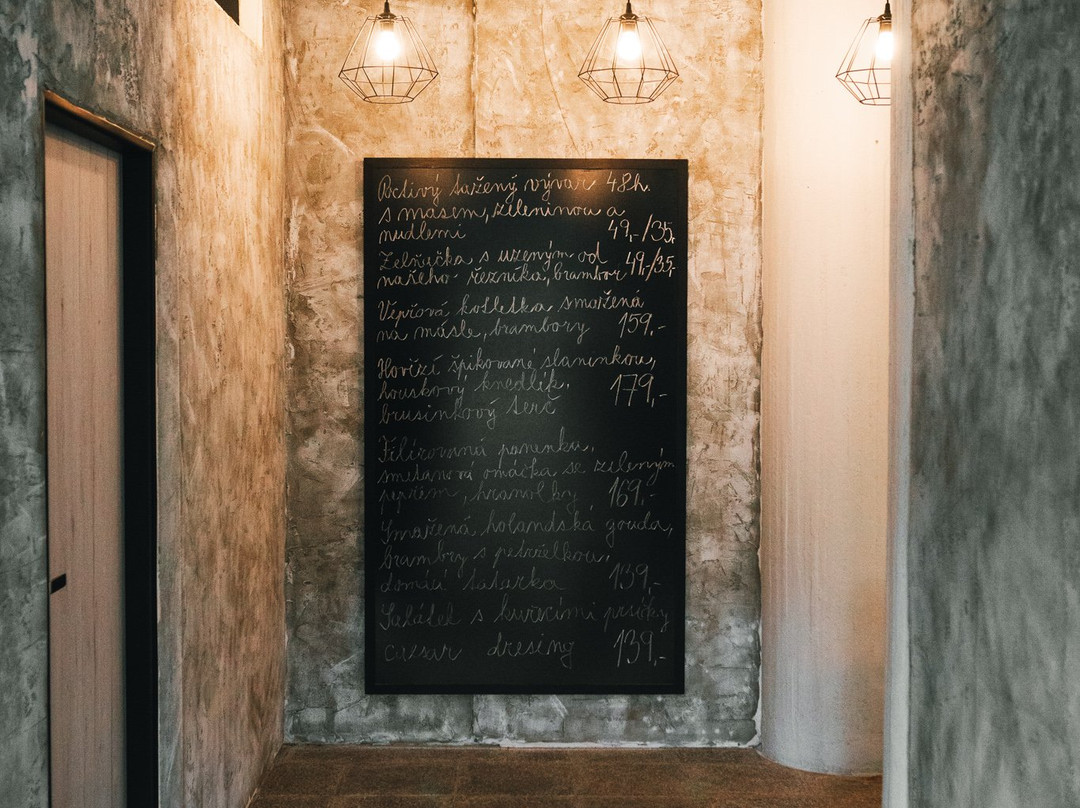 Poctivý tažený vývar 48h.
s masem, zeleninou a
nudlemi 49,-/35,-
Zelňačka s uzeným od 49,-/35,-
našeho řezníka, brambor
Vepřová kotletka smažená
na másle, brambory 159,-
Hovězí špikované slaninkou,
houskový knedlík, 179,-
brusinkový terč
Filírovaná panenka,
smetanová omáčka se zeleným
pepřem, hranolky 169,-
Smažená holandská gouda,
brambry s petrželkou,
domácí tatarka 139,-
Salátek s kuřecími prsíčky
caesar dresing 139,-